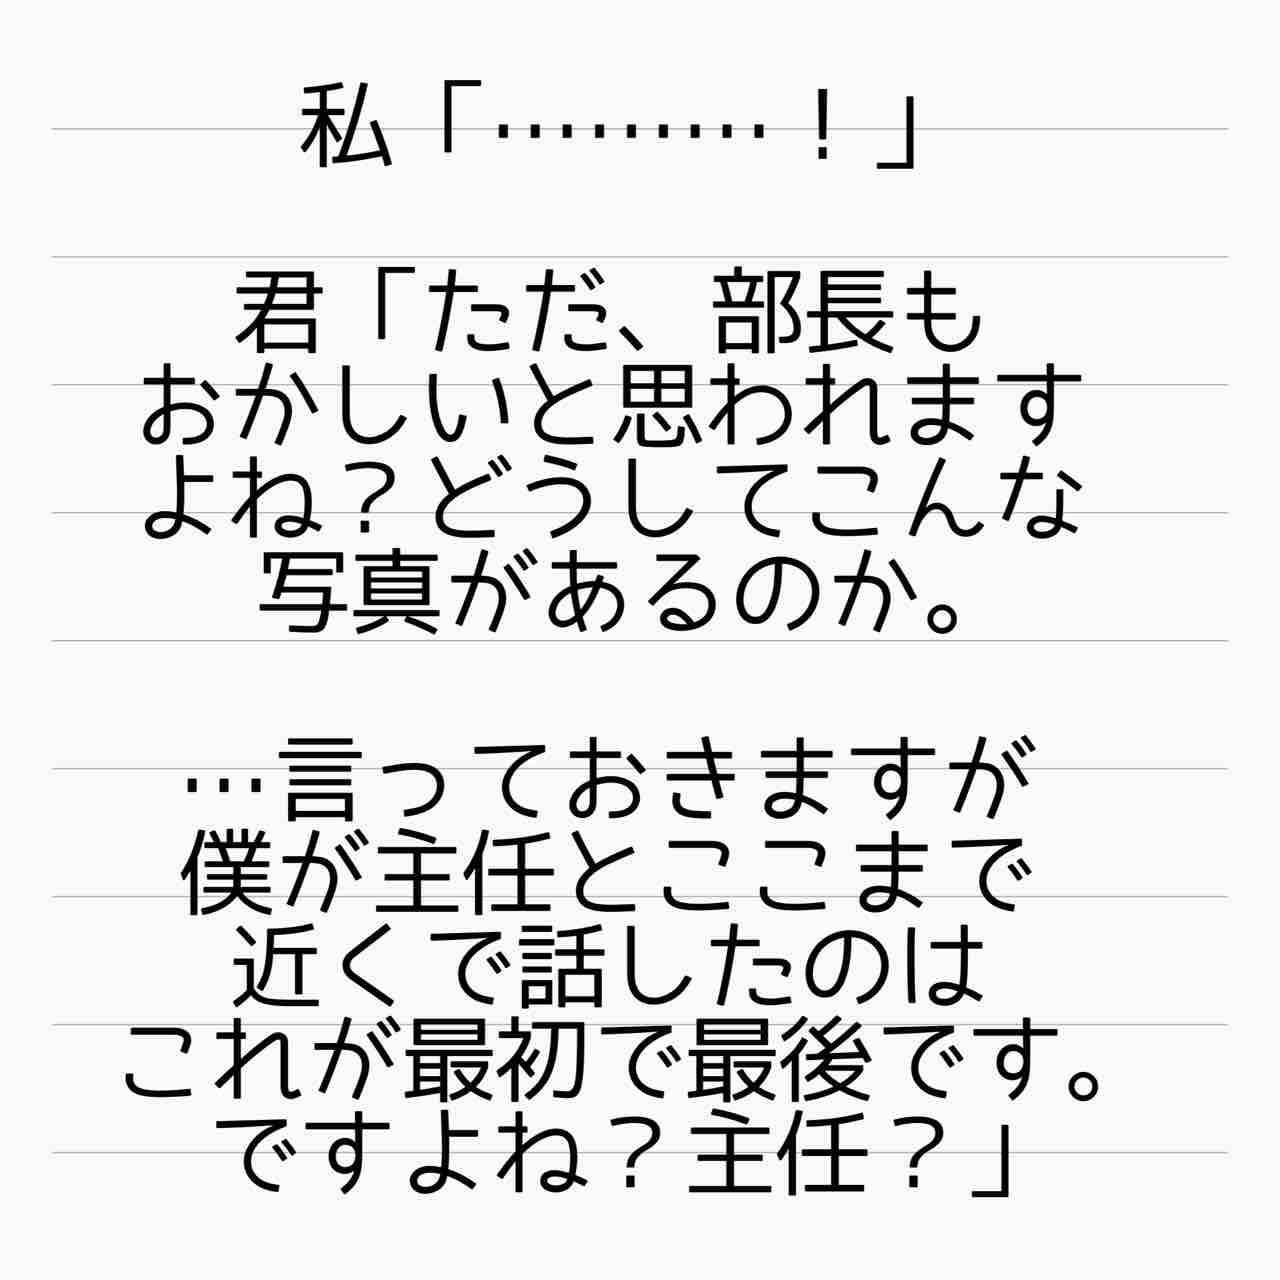 私「………！」
君「ただ、部長も
おかしいと思われます
よね？どうしてこんな
写真があるのか。
…言っておきますが
僕が主任とここまで
近くで話したのは
これが最初で最後です。
ですよね？主任？」